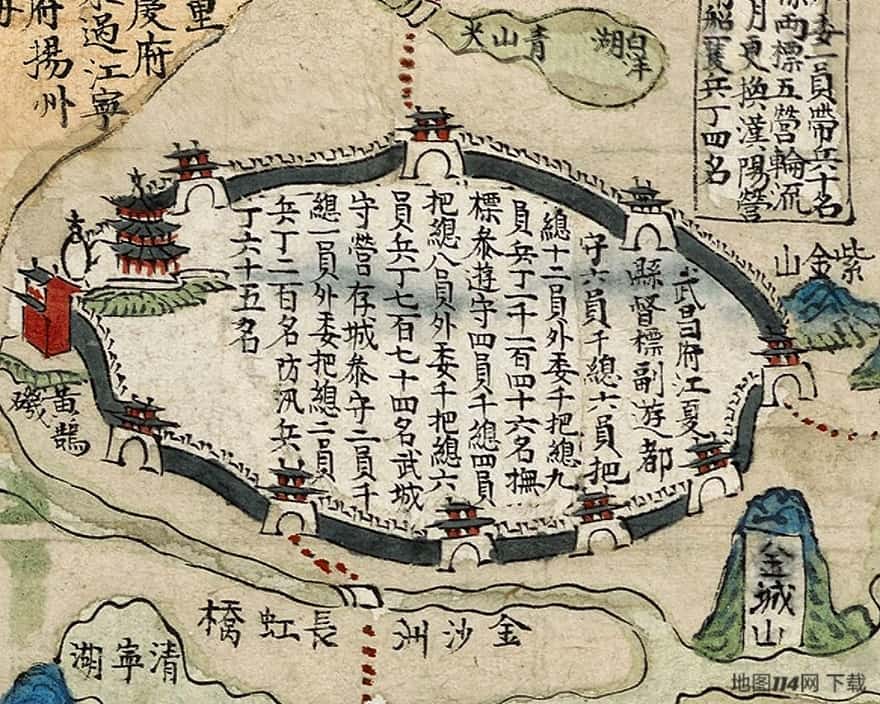 委一員帶兵十名
兩標五營輪流
月更換漢陽營
兵丁四名
白洋湖
青山
重
慶府
過江寧
府揚州
紫金山
武昌府江夏
縣督標副遊都
守六員千總六員把
總十二員外委千把總九
員兵丁一千一百四十六名撫
標叅遊守四員千總四員
把總八員外委千把總六
員兵丁七百七十四名武城
守營存城叅守二員千
總一員外委把總二員
兵丁二百名防汛兵
丁六十五名
黃鵠磯
金城山
金沙洲
長虹橋
清寧湖
地图114网 下载